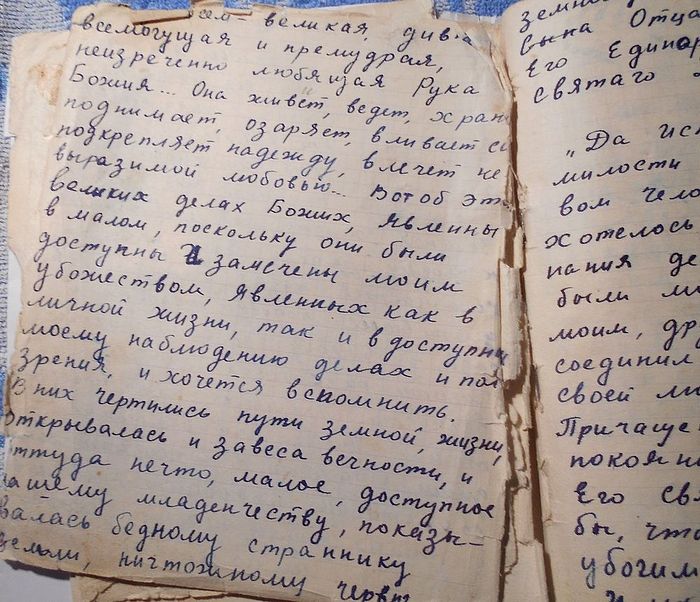 сем великая, дивная
всемогущая и премудрая,
неизреченно любящая Рука
Божия... Она живёт, ведет, храни
поднимает, озаряет, вливает си
подкрепляет надежду, влечет не
выразимой любовью... Вот об эти
великих делах Божих, явленны
в малом, поскольку они были
доступны и замечены моим
убожеством, явленных как в
личной жизни, так и в доступны
моему наблюдению делах и пол
зрения, и хочется вспомнить.
В них чертились пути земной, жизни,
Открывалась и завеса вечности, и
оттуда нечто, малое, доступное
нашему младенчеству, показы-
валась бедному страннику
земли, ничтожному червю
земно
Сына Отца
Его Единор
святаго
„Да ис
милости
вом чело
хотелось
пания де
были ми
моим, др
соединил
своей ли
Причаще
покояни
Его св
бы, что
убогим